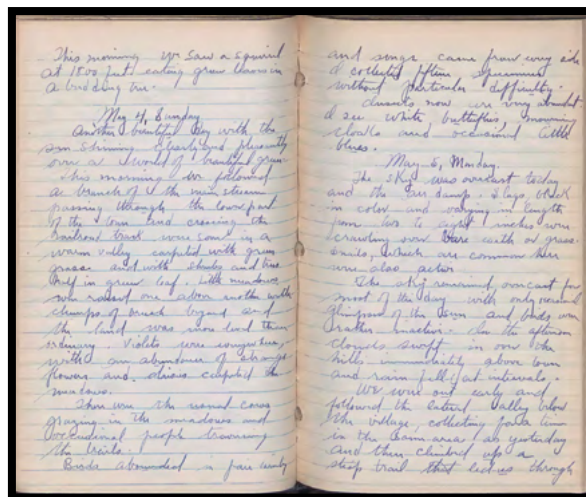 This morning we saw a squirrel
at 1800 feet eating green leaves in
a budding tree.
May 4, Sunday
Another beautiful day with the
sun shining clearly and pleasantly
over a world of beautiful green.
This morning we followed
a branch of the main stream
passing through the lower part
of the town and crossing the
railroad track were soon in a
warm valley carpeted with green
grass and with shrubs and trees
half in green leaf. Little meadows
were raised one above another with
clumps of brush beyond and
the land was more level than
ordinary. Violets were everywhere,
with an abundance of strange
flowers and daisies carpeted the
meadows.
There were the usual cows
grazing in the meadows and
occasional people traversing
the trails.
Birds abounded in fair variety
and songs came from every side
I collected fifteen specimens
without particular difficulty.
Insects now are very abundant
I see white butterflies, mourning
cloaks and occasional little
blues.
May 5, Monday.
The sky was overcast today
and the air damp. Slugs, black
in color and varying in length
from two to eight inches were
crawling over bare earth or grass
snails, which are common here
were also active.
The sky remained overcast for
most of the day with only occasional
glimpses of the sun and birds were
rather inactive. In the afternoon
clouds swept in over the
hills immediately above town
and rain fell at intervals.
We went out early and
followed the lateral valley below
the village, collecting for a time
in the same area as yesterday
and then climbed up a
steep trail that led us through